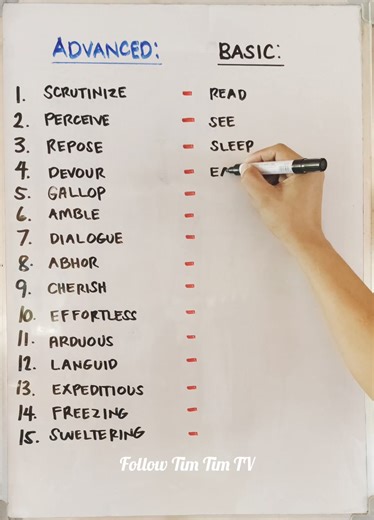 ADVANCED: BASIC:
1. SCRUTINIZE - READ
2. PERCEIVE - SEE
3. REPOSE - SLEEP
4. DEVOUR - EA
5. GALLOP -
6. AMBLE -
7. DIALOGUE -
8. ABHOR -
9. CHERISH -
10. EFFORTLESS -
11. ARDUOUS -
12. LANGUID -
13. EXPEDITIOUS -
14. FREEZING -
15. SWELTERING -
Follow Tim Tim TV